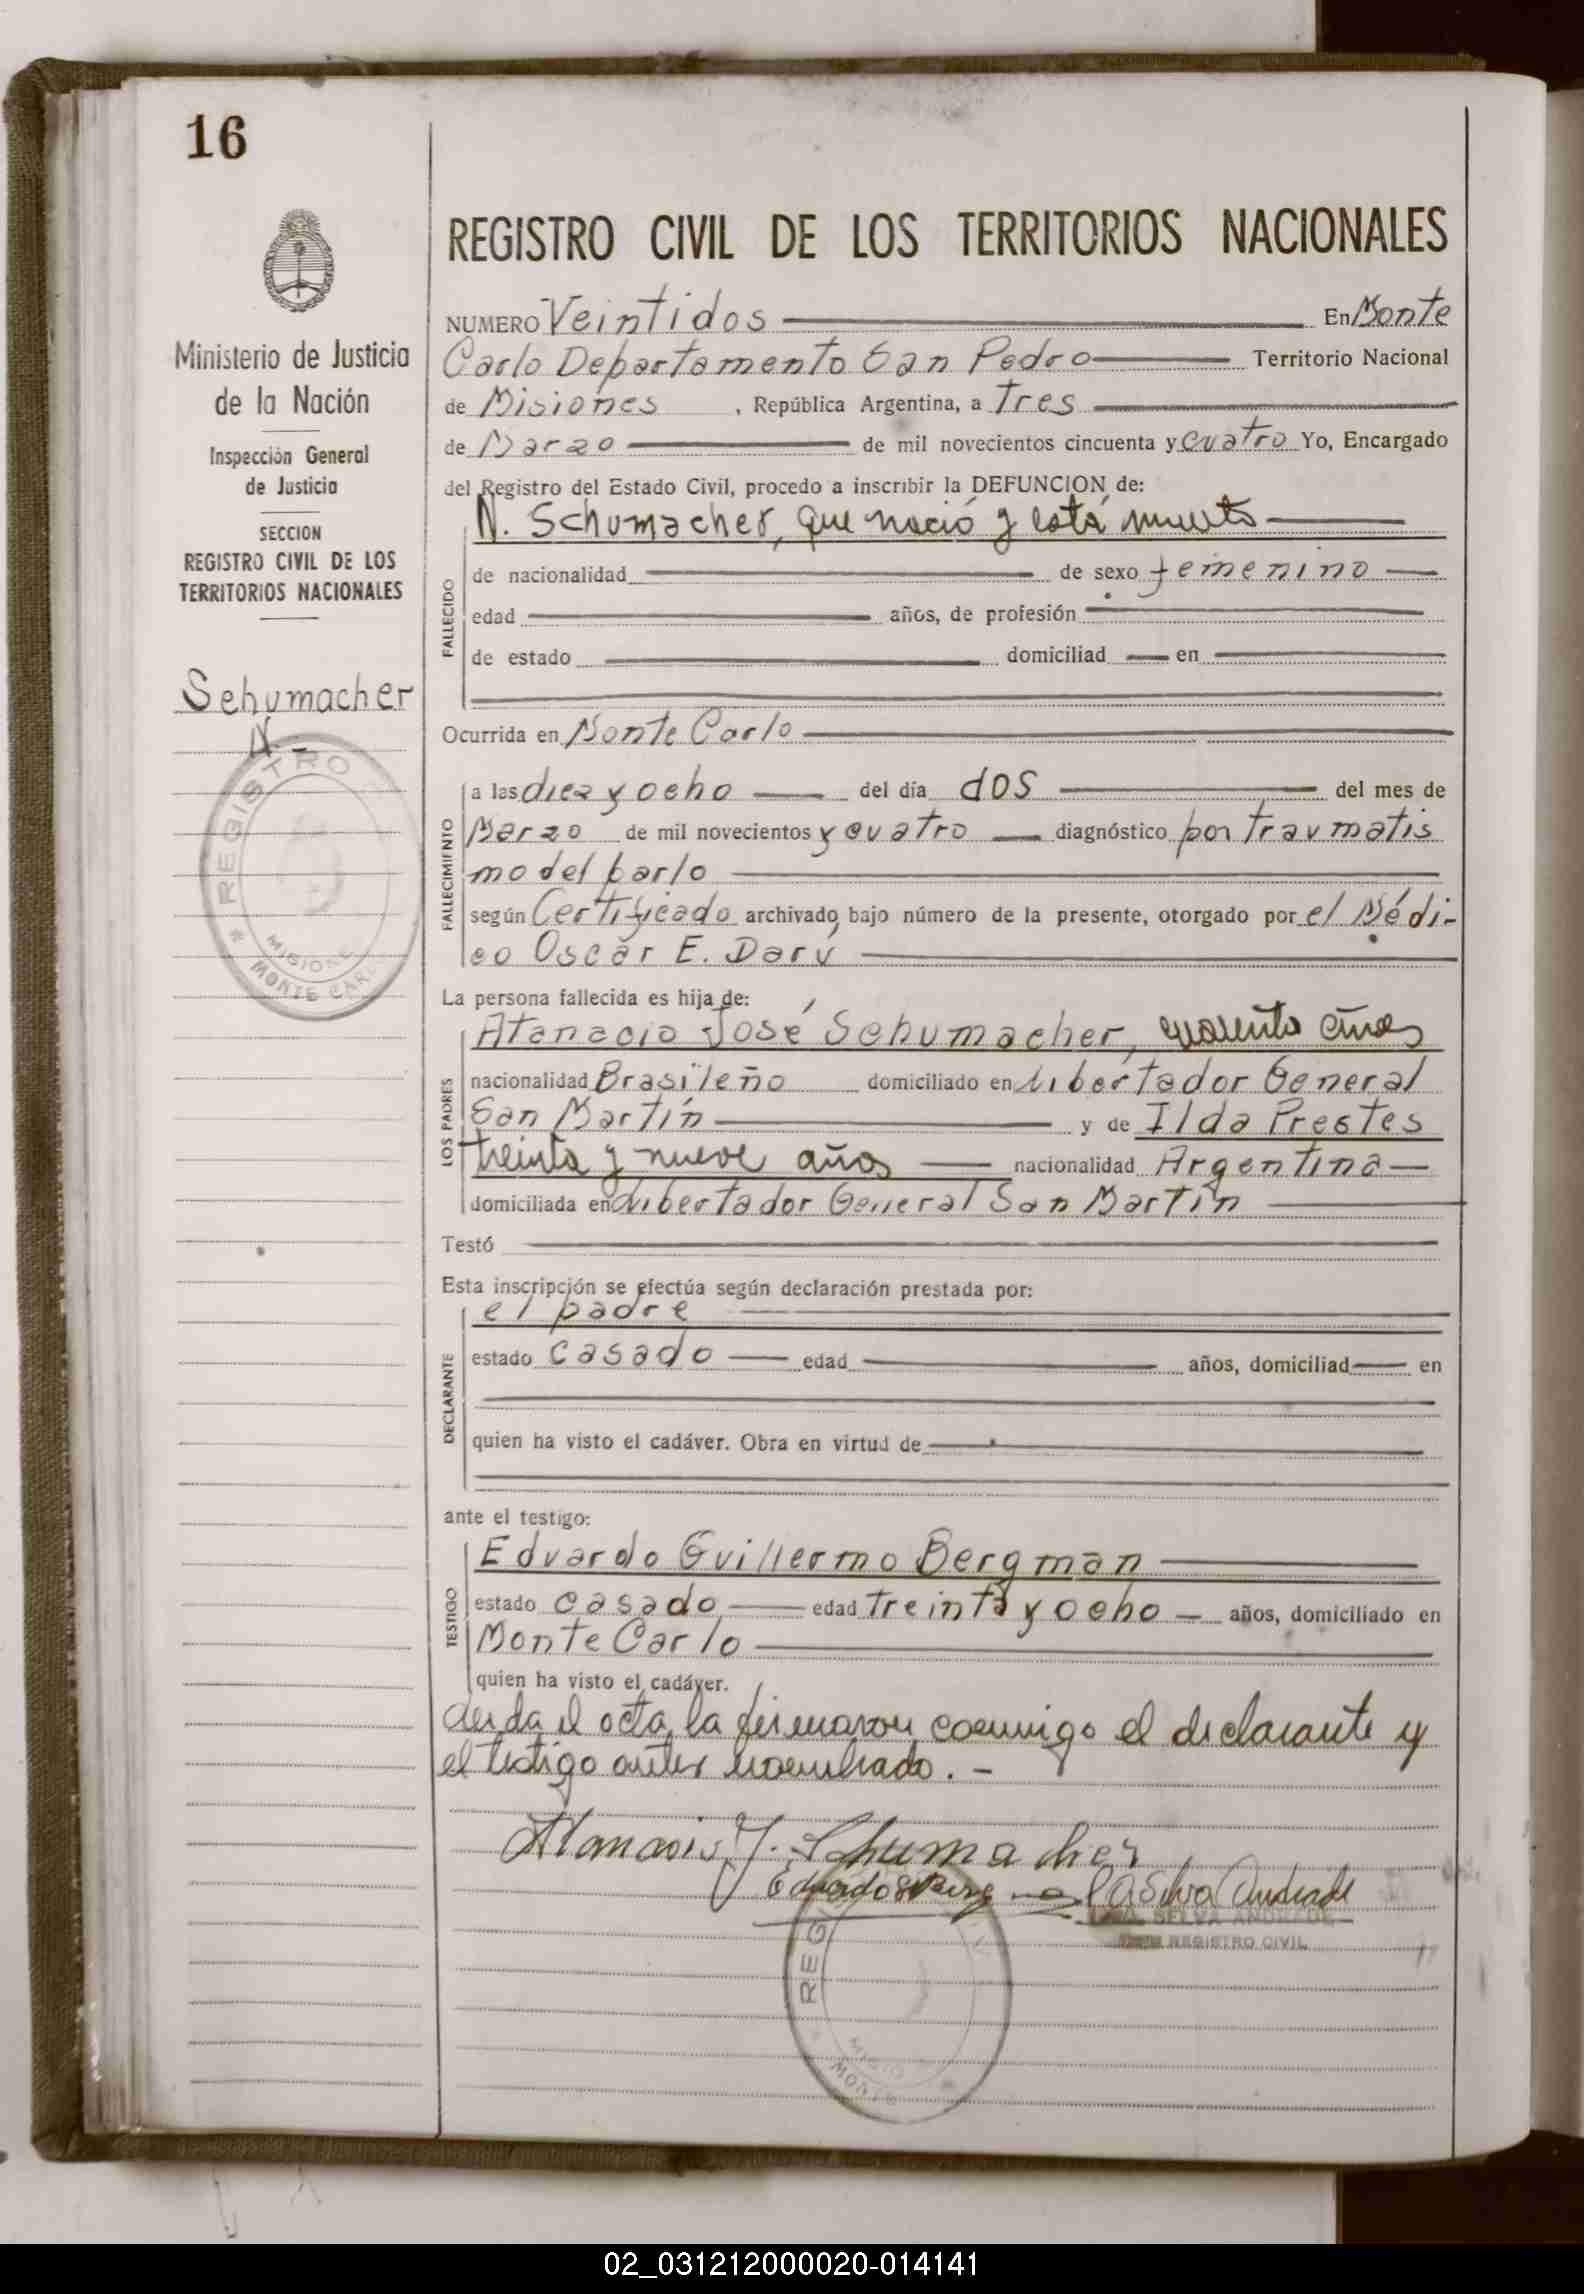 16
REGISTRO CIVIL DE LOS TERRITORIOS NACIONALES
Ministerio de Justicia
de la Nación
Inspección General
de Justicia
SECCION
REGISTRO CIVIL DE LOS
TERRITORIOS NACIONALES
Schumacher
N.-
REGISTRO
MISIONES
MONTE CARLO
NUMERO Veintidos En Monte
Carlo Departamento San Pedro Territorio Nacional
de Misiones, República Argentina, a Tres
de Marzo de mil novecientos cincuenta y cuatro Yo, Encargado
del Registro del Estado Civil, procedo a inscribir la DEFUNCION de:
N. Schumacher, que nació y está muerto
FALLECIDO
de nacionalidad de sexo femenino
edad años, de profesión
de estado domiciliad en
Ocurrida en Monte Carlo
FALLECIMIENTO
a las diez y ocho del día dos del mes de
Marzo de mil novecientos y cuatro diagnóstico por traumatis
mo del parto
según Certificado archivado bajo número de la presente, otorgado por el Médi-
co Oscar E. Darú
La persona fallecida es hija de:
LOS PADRES
Atanacio José Schumacher, cuarenta años
nacionalidad Brasileño domiciliado en Libertador General
San Martín y de Ilda Prestes
treinta y nueve años nacionalidad Argentina
domiciliada en Libertador General San Martín
Testó
Esta inscripción se efectúa según declaración prestada por:
DECLARANTE
el padre
estado casado edad años, domiciliad en
quien ha visto el cadáver. Obra en virtud de
ante el testigo:
TESTIGO
Eduardo Guillermo Bergman
estado casado edad treinta y ocho años, domiciliado en
Monte Carlo
quien ha visto el cadáver.
Leida el acta, la firmaron conmigo el declarante y
el testigo antes nombrado.-
Atanacio J. Schumacher
REGISTRO CIVIL
REGI
MISIO
MONTE
02_031212000020-014141